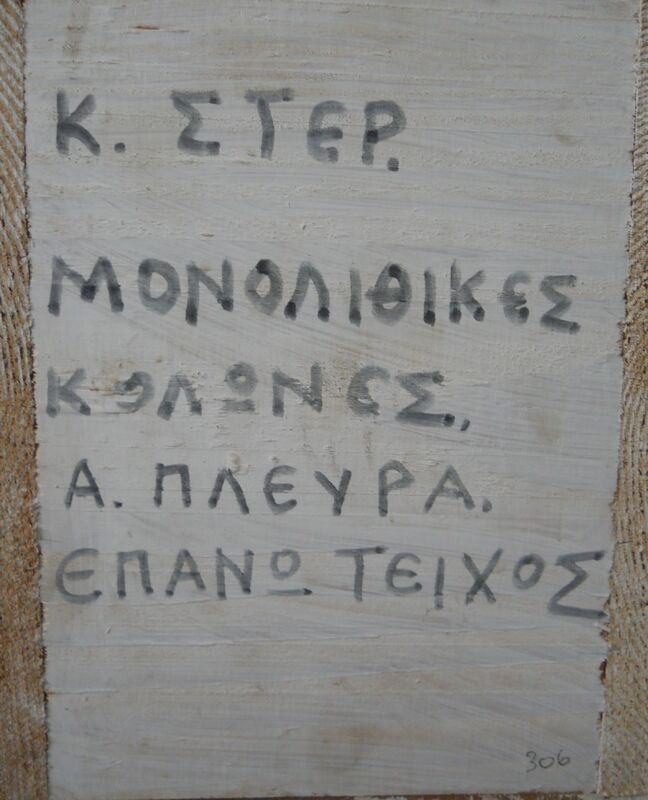 Κ. ΣΤΕΡ.
ΜΟΝΟΛΙΘΙΚΕΣ
ΚΟΛΩΝΕΣ,
Α. ΠΛΕΥΡΑ.
ΕΠΑΝΩ ΤΕΙΧΟΣ
306